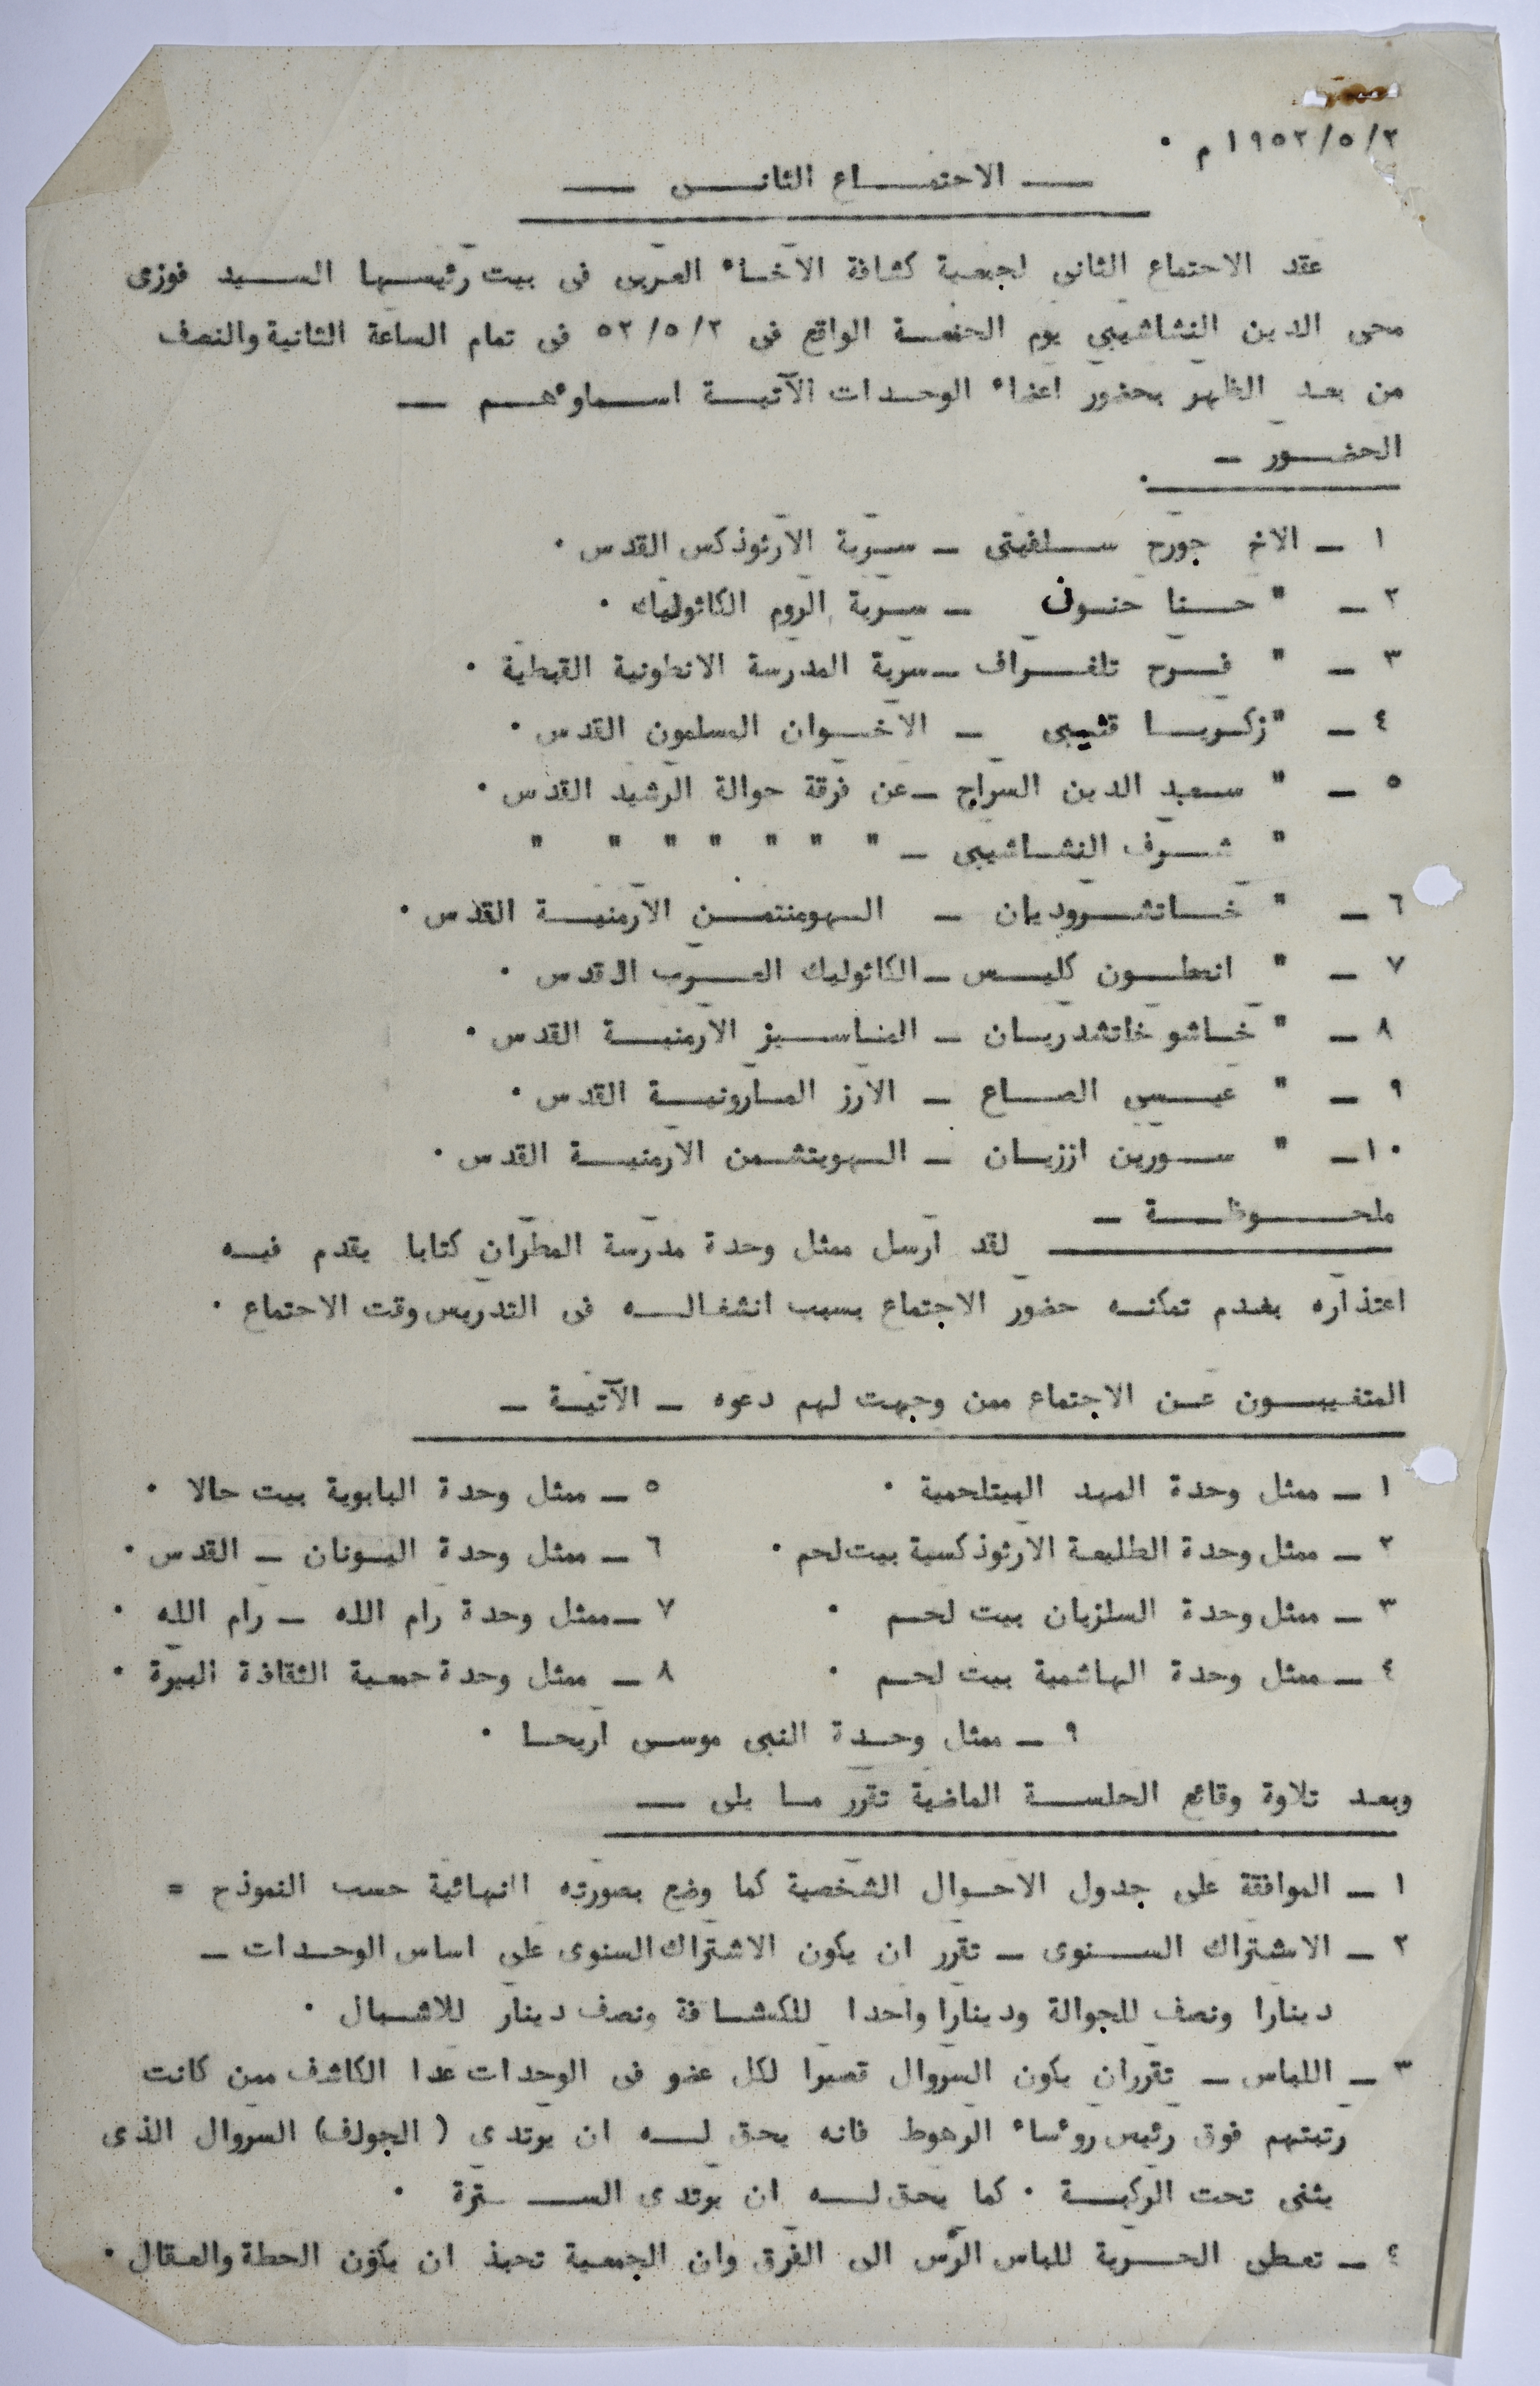 ١٩٥٢/٥/٢ م ٠
— الاجتماع الثاني —
عقد الاجتماع الثاني لجمعية كشافة الاخاء العربي في بيت رئيسها السيد فوزى
محي الدين النشاشيبي يوم الجمعة الواقع في ٥٢/٥/٢ في تمام الساعة الثانية والنصف
من بعد الظهر بحضور اعضاء الوحدات الآتية اسماوءهم —
الحضور —
١ — الاخ جورج سلفيتي — سرية الارثوذكس القدس ٠
٢ — " حنا حنون — سرية الروم الكاثوليك ٠
٣ — " فرح تلغراف — سرية المدرسة الانطونية القبطية ٠
٤ — " زكريا قثيبي — الاخوان المسلمون القدس ٠
٥ — " سعيد الدين السراج — عن فرقة جوالة الرشيد القدس ٠
" شرف النشاشيبي — " " " " " " "
٦ — " خاتشروديان — الهومنتمن الارمنية القدس ٠
٧ — " انطون كليس — الكاثوليك العرب القدس ٠
٨ — " خاشو خاتشدريان — المناسيز الارمنية القدس ٠
٩ — " عيسى الصاع — الارز المارونية القدس ٠
١٠ — " سورين اززيان — الهويتشمن الارمنية القدس ٠
ملحوظة —
لقد ارسل ممثل وحدة مدرسة المطران كتابا يقدم فيه
اعتذاره بعدم تمكنه حضور الاجتماع بسبب انشغاله في التدريس وقت الاجتماع ٠
المتغيبون عن الاجتماع ممن وجهت لهم دعوه — الآتية —
١ — ممثل وحدة المهد البيتلحمية ٠
٥ — ممثل وحدة البابوية بيت جالا ٠
٢ — ممثل وحدة الطليعة الارثوذكسية بيت لحم ٠
٦ — ممثل وحدة اليونان — القدس ٠
٣ — ممثل وحدة السلزيان بيت لحم ٠
٧ — ممثل وحدة رام الله — رام الله ٠
٤ — ممثل وحدة الهاشمية بيت لحم ٠
٨ — ممثل وحدة جمعية الثقافة البيرة ٠
٩ — ممثل وحدة النبي موسى اريحا ٠
وبعد تلاوة وقائع الجلسة الماضية تقرر ما يلي —
١ — الموافقة على جدول الاحوال الشخصية كما وضع بصورته النهائية حسب النموذج =
٢ — الاشتراك السنوى — تقرر ان يكون الاشتراك السنوى على اساس الوحدات —
دينارا ونصف للجوالة ودينارا واحدا للكشافة ونصف دينار للاشبال ٠
٣ — اللباس — تقرر ان يكون السروال قصيرا لكل عضو في الوحدات عدا الكاشف ممن كانت
رتبتهم فوق رئيس روءساء الرهوط فانه يحق له ان يرتدي ( الجولف) السروال الذى
يثنى تحت الركبة ٠ كما يحق له ان يرتدى السترة ٠
٤ — تعطى الحرية للباس الرأس الى الفرق وان الجمعية تحبذ ان يكون الحطة والعقال ٠